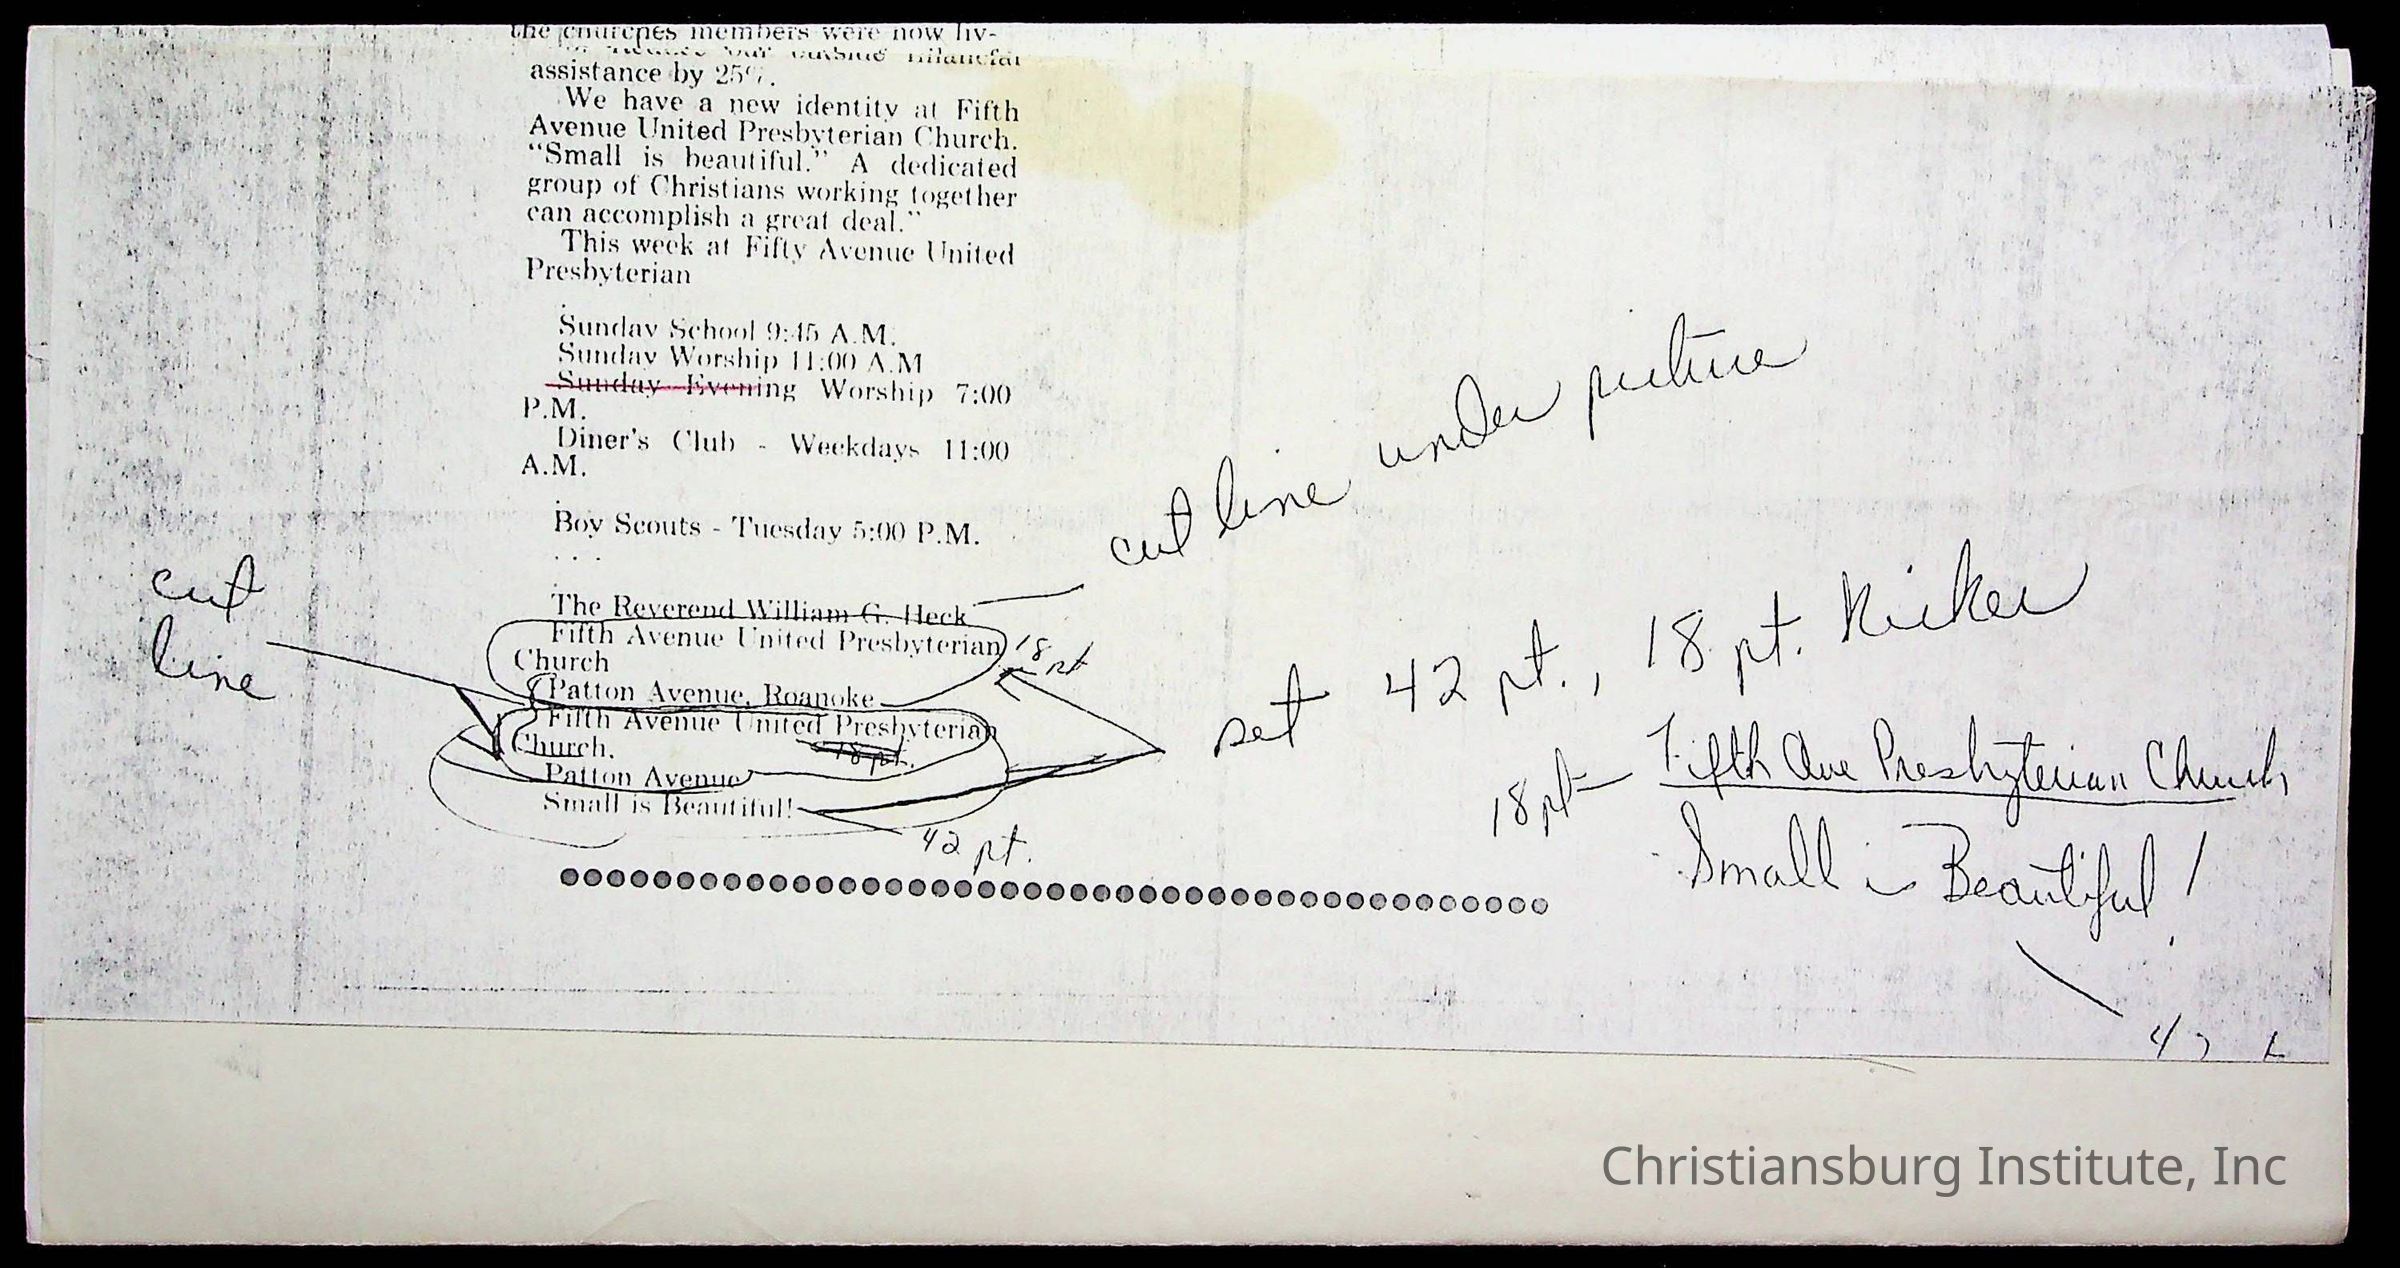 the churches members were now liv-
outside financial
assistance by 25%.
We have a new identity at Fifth
Avenue United Presbyterian Church.
"Small is beautiful." A dedicated
group of Christians working together
can accomplish a great deal."
This week at Fifty Avenue United
Presbyterian
Sunday School 9:45 A.M.
Sunday Worship 11:00 A.M
Sunday Evening Worship 7:00
P.M.
Diner's Club - Weekdays 11:00
A.M.
Boy Scouts - Tuesday 5:00 P.M.
. . .
The Reverend William G. Heck
Fifth Avenue United Presbyterian
Church
Patton Avenue, Roanoke
Fifth Avenue United Presbyterian
Church.
Patton Avenue
Small is Beautiful!
cut line under picture
cut
line
18 pt
18 pt.
42 pt.
set 42 pt., 18 pt. Kicker
18 pt Fifth Ave Presbyterian Church
Small is Beautiful!
Christiansburg Institute, Inc